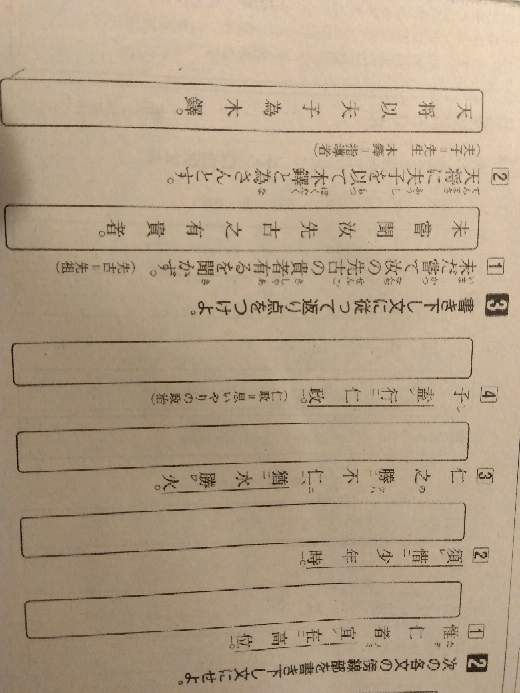 2 次の各文の傍線部を書き下し文にせよ。
1 惟仁者宜在高位。
2 須惜少年時。
3 仁之勝不仁、猶水勝火。
4 子盍行仁政。(仁政=思いやりの政治)
3 書き下し文に従って返り点をつけよ。
1 未だ嘗て汝の先古の貴者有るを聞かず。(先古=先祖)
未嘗聞汝先古之有貴者。
2 天将に夫子を以て木鐸と為さんとす。
(夫子=先生 木鐸=指導者)
天将以夫子為木鐸。